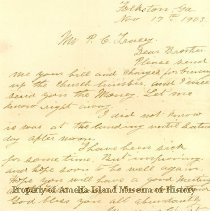 Folkston, Ga
Nov 17th 1903
Mr P. C.
Dear Brother
Please send
me your bill and charges for
up the church lumber, and I will
send you the Money. Let me
know right away.
I did not know
I was at the landing until Satur
day after noon.
I have been sick
for some time. But improving
and hope soon to be well again.
Hope you will have a good
Property of Amelia Island Museum of History
God bless you all abundantly